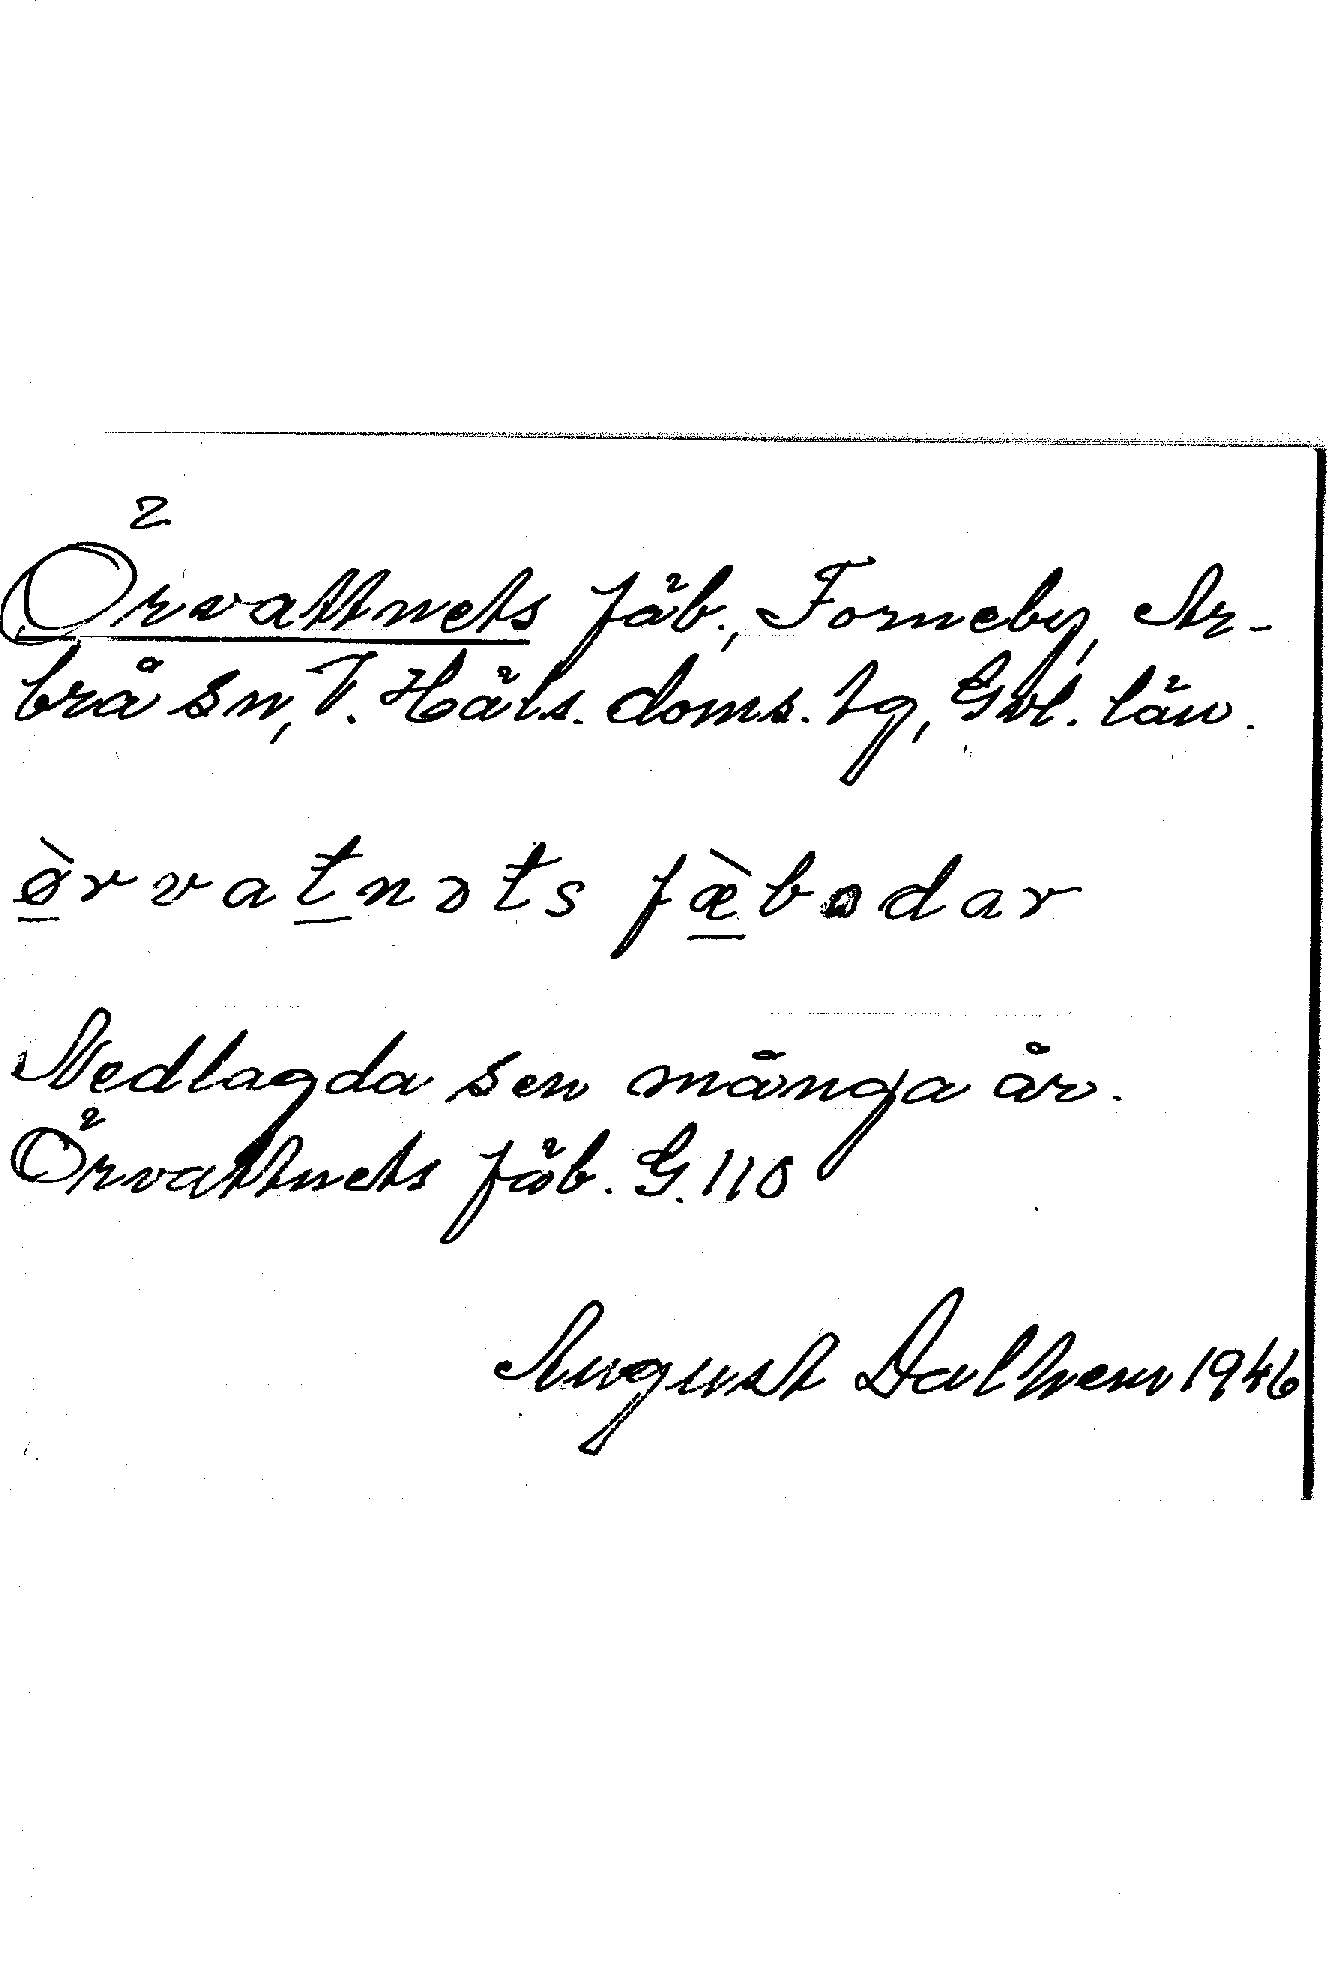 Örvattnets fäb., Forneby, Ar-
brå sn, V. Häls. doms. tg, Gvl. län.
ø̀rvatnəts fæ̀bodar
Nedlagda sen många år.
Örvattnets fäb. G. 110
August Dalhem 1946